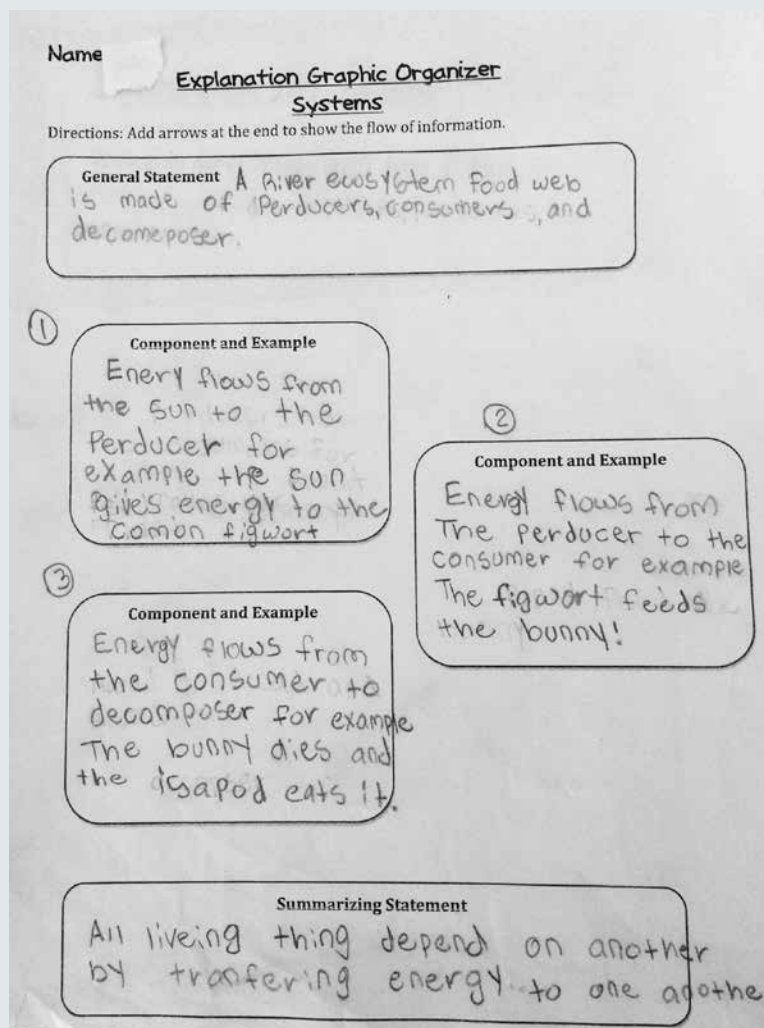 Name
Explanation Graphic Organizer
Systems
Directions: Add arrows at the end to show the flow of information.
General Statement A River ecosystem food web
is made of Perducers, consumers, and
decomeposer.
1
Component and Example
Enery flows from
the sun to the
Perducer for
example the sun
gives energy to the
comon figwort
2
Component and Example
Energy flows from
The perducer to the
consumer for example
The figwort feeds
the bunny!
3
Component and Example
Energy flows from
the consumer to
decomposer for example
The bunny dies and
the isapod eats it.
Summarizing Statement
All liveing thing depend on another
by tranfering energy to one agothe